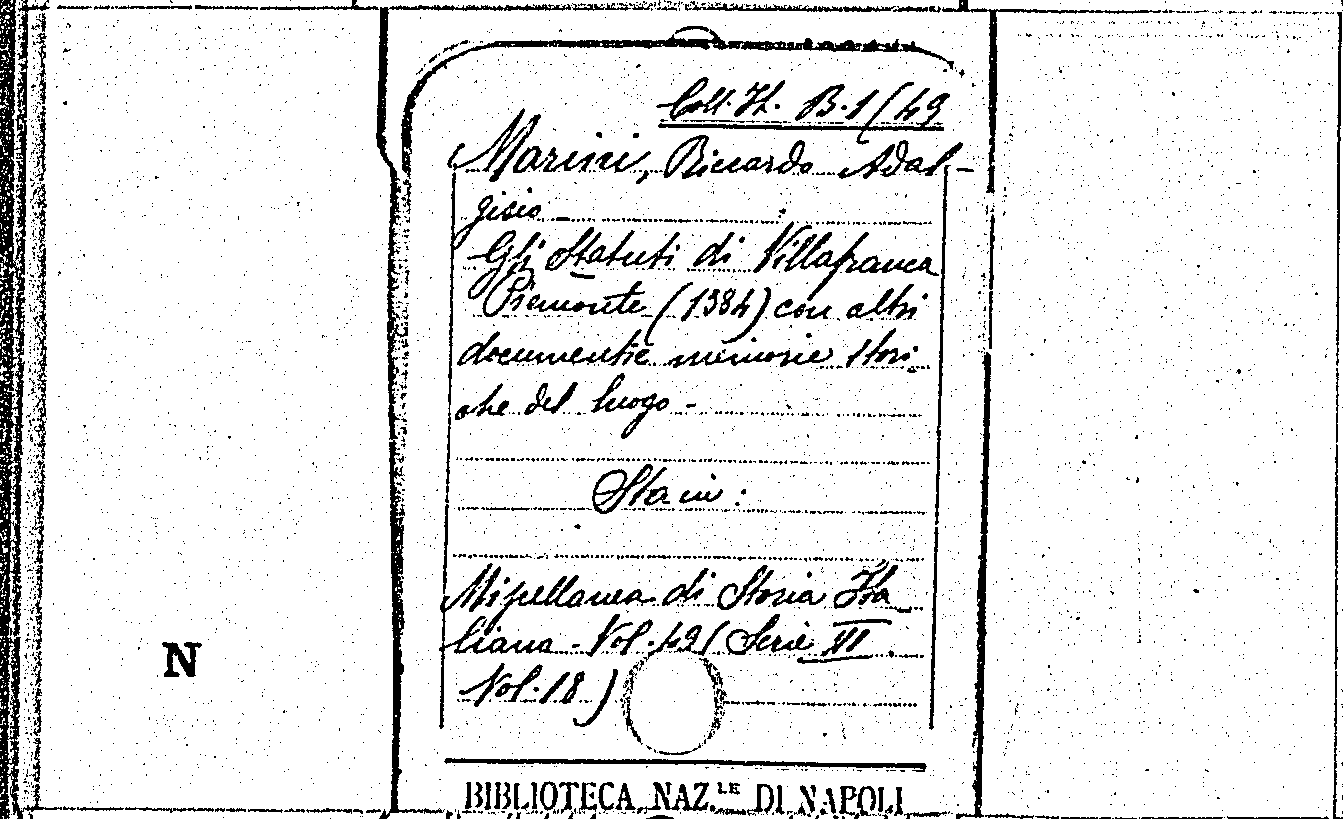 Coll. It. B. 1 (49
Marini, Riccardo Adal-
gisio -
Gli Statuti di Villafranca
Piemonte (1384) con altri
documenti e memorie stori-
che del luogo -
Sta in:
Miscellanea di Storia Ita
liana - Vol. 49 ( Serie VI
N
Vol. 18 )
BIBLIOTECA NAZ.LE DI NAPOLI